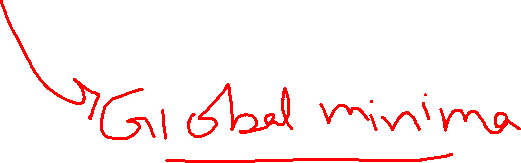 Global minima